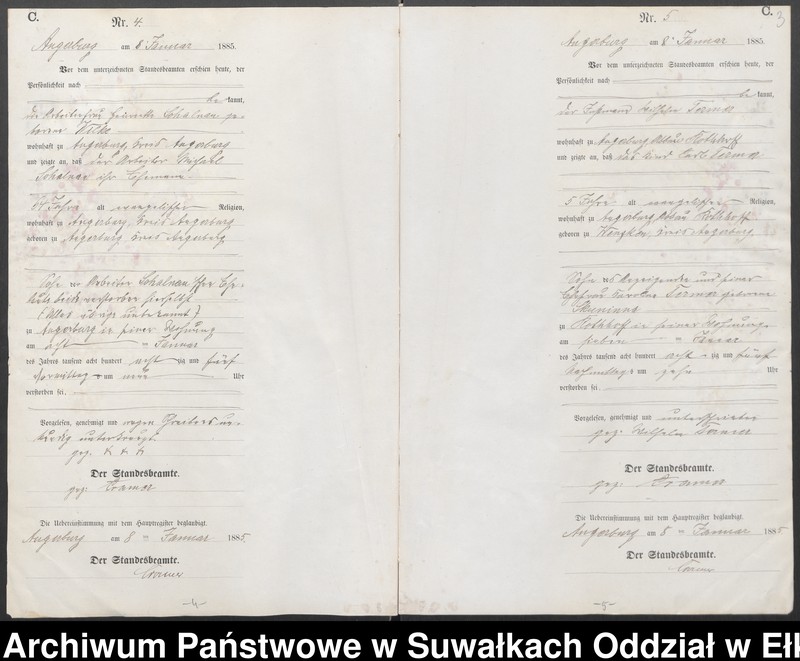 C.
Nr. 4.
Angerburg am 8 Januar 1885.
Vor dem unterzeichneten Standesbeamten erschien heute, der
Persönlichkeit nach
be kannt,
die Arbeiterfrau Schalnau ge-
borene Wilke
wohnhaft zu Angerburg, Kreis Angerburg
und zeigte an, daß der Arbeiter
Schalnau ihr Ehemann
64 Jahre alt evangelischer Religion,
wohnhaft zu Angerburg, Kreis Angerburg
geboren zu Angerburg Kreis Angerburg
Sohn der Arbeiter Schalnau'schen Ehe-
leute beide verstorben hierselbst
(Alles übrige unbekannt)
zu Angerburg in seiner Wohnung
am acht ten Januar
des Jahres tausend acht hundert acht zig und fünf
Vormittags um neun Uhr
verstorben sei.
Vorgelesen, genehmigt und wegen Schreibens un-
kundig unterkreuzt
gez. + + +
Der Standesbeamte.
gez. Cramer
Die Uebereinstimmung mit dem Hauptregister beglaubigt.
Angerburg am 8 ten Januar 1885
Der Standesbeamte.
Cramer
-4-
C.
3
Nr. 5
Angerburg am 8 Januar 1885.
Vor dem unterzeichneten Standesbeamten erschien heute, der
Persönlichkeit nach
be kannt,
der Wilhelm
wohnhaft zu Angerburg Abbau
und zeigte an, daß das Kind Carl
5 Jahre alt evangelischer Religion,
wohnhaft zu Angerburg Abbau
geboren zu Kreis Angerburg
Sohn des Anzeigenden und seiner
Ehefrau Karoline geborene
zu in seiner Wohnung
am sieben ten Januar
des Jahres tausend acht hundert acht zig und fünf
Nachmittags um zehn Uhr
verstorben sei.
Vorgelesen, genehmigt und unterschrieben
gez. Wilhelm
Der Standesbeamte.
gez. Cramer
Die Uebereinstimmung mit dem Hauptregister beglaubigt.
Angerburg am 8 ten Januar 1885
Der Standesbeamte.
Cramer
-5-
Archiwum Państwowe w Suwałkach Oddział w Ełk